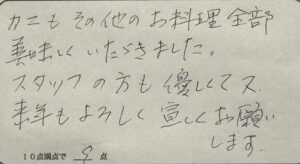 カニもその他のお料理全部
美味しくいたらきました。
スタッフの方も優しくてス.
来年もよろしく宜しくお願い
します.
10点満点で 9 点